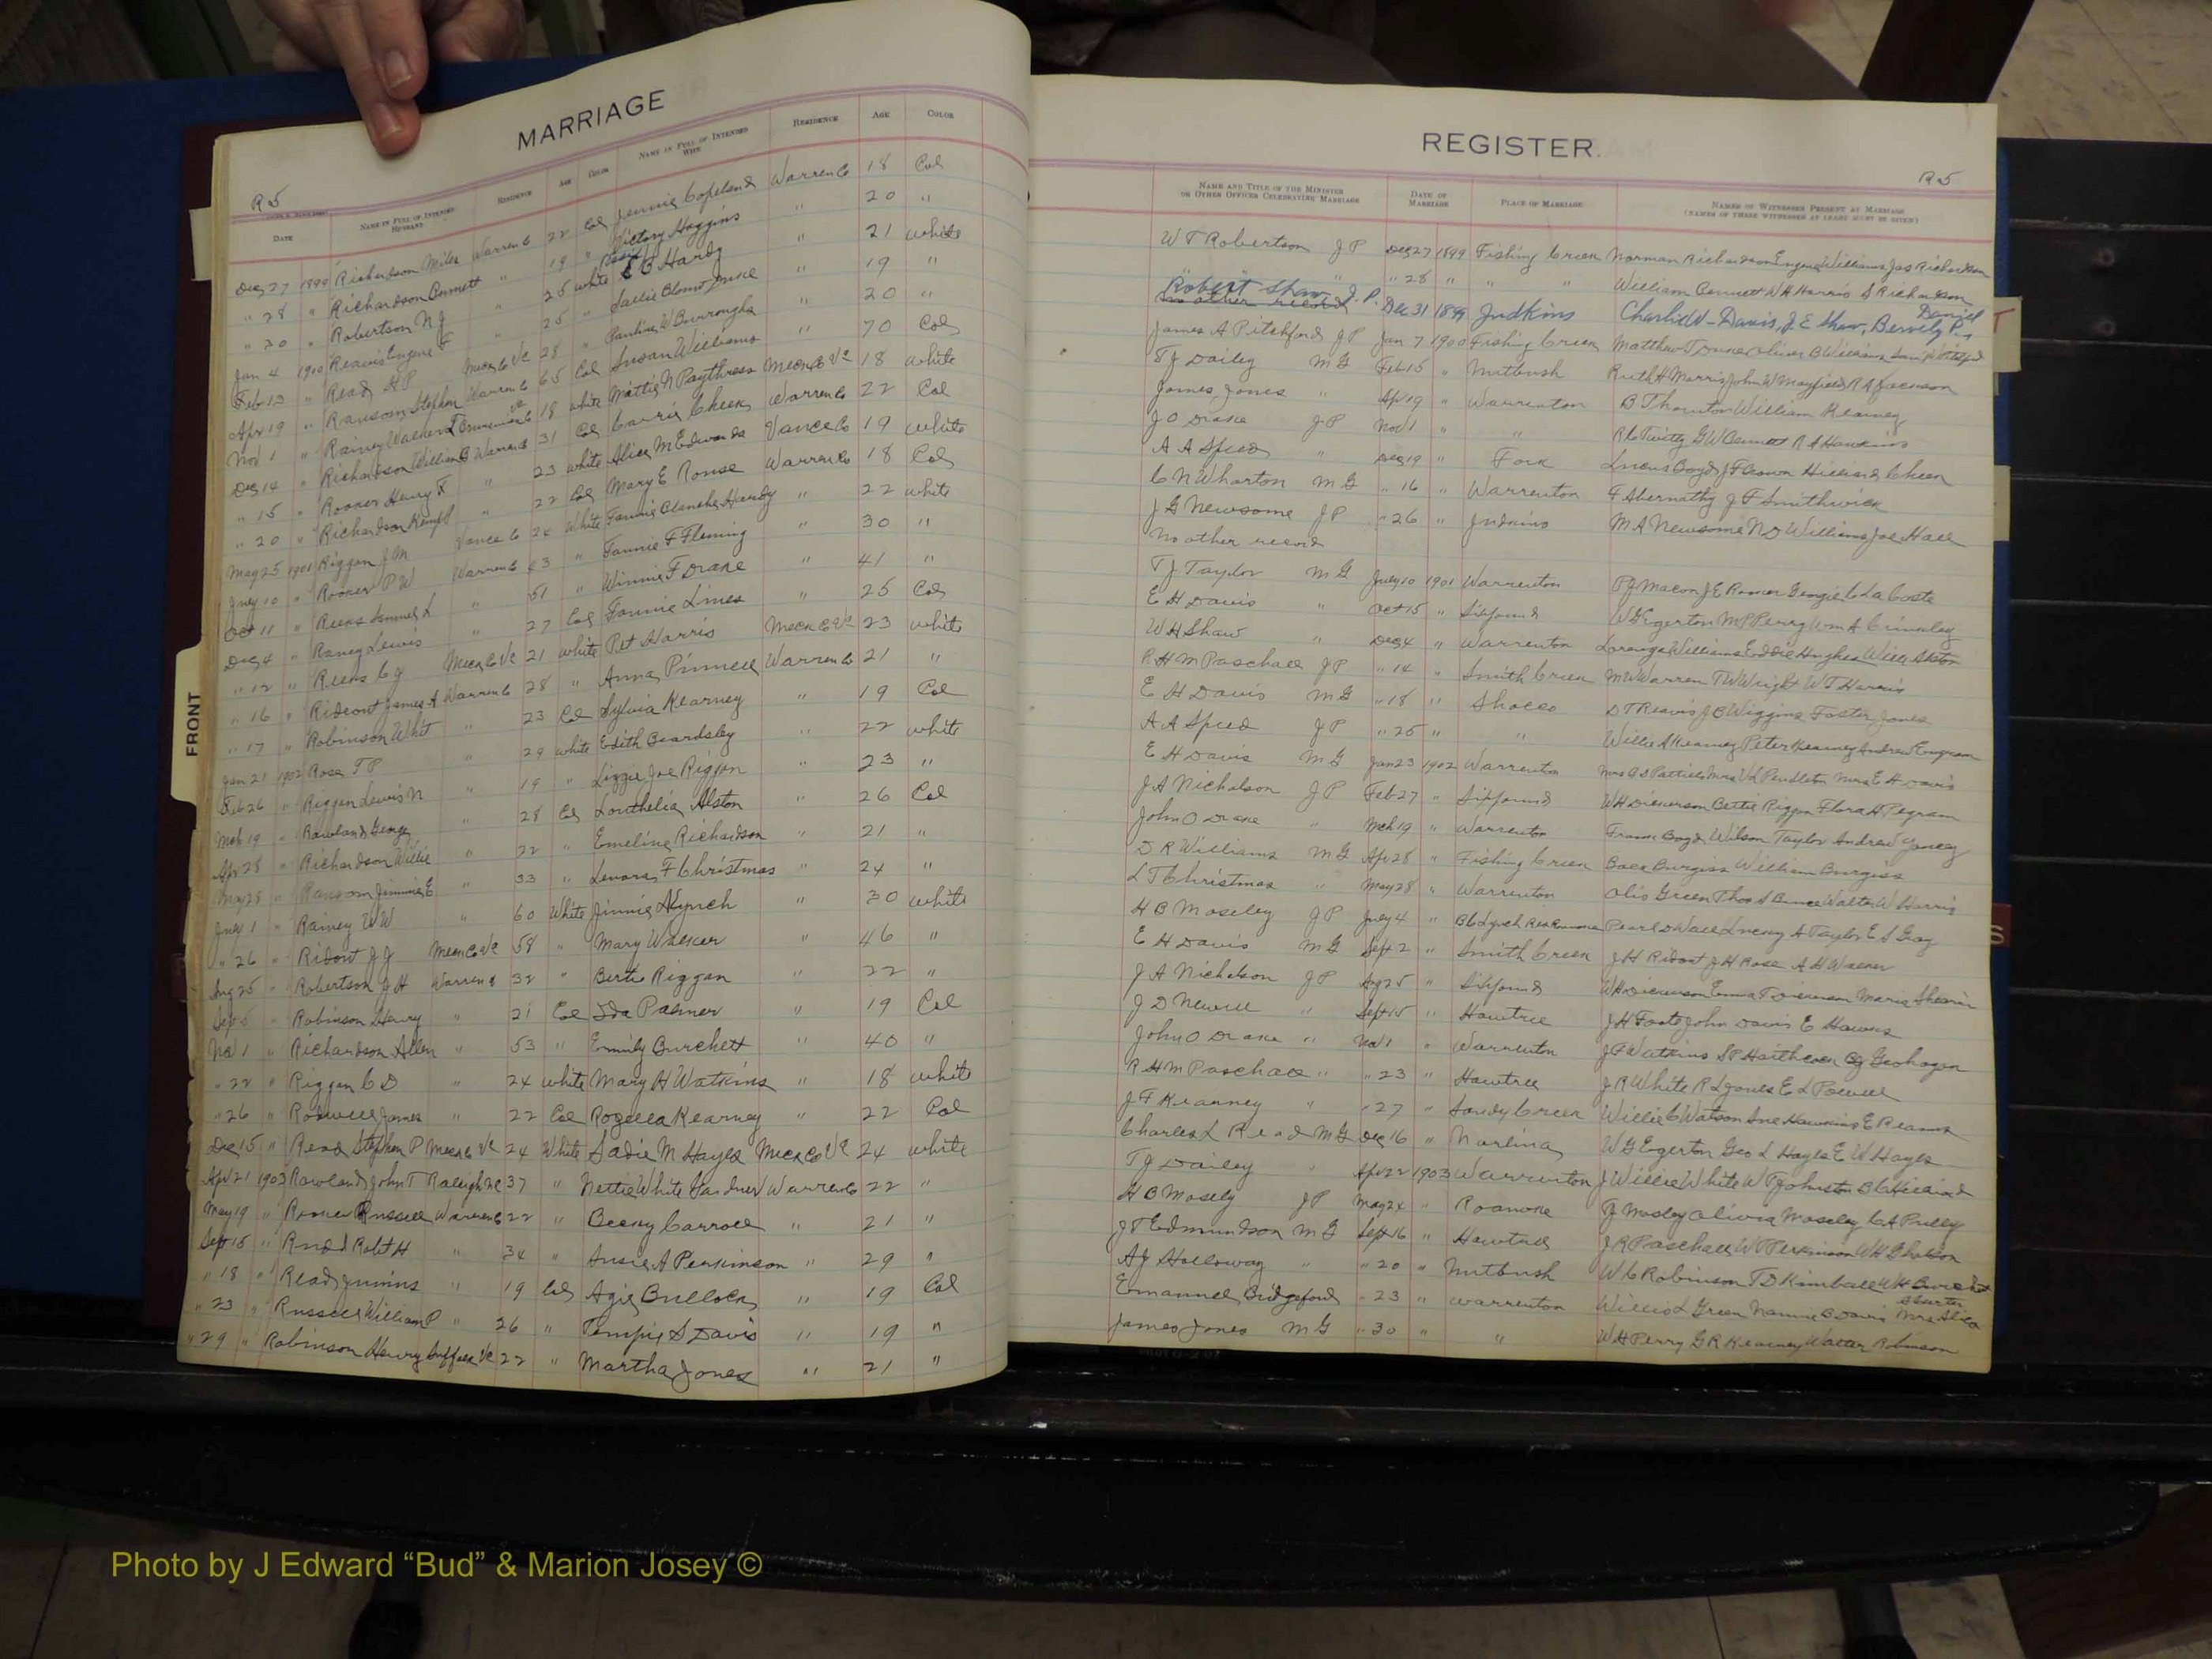 MARRIAGE
R5
DATE NAME IN FULL OF INTENDED HUSBAND RESIDENCE AGE COLOR NAME IN FULL OF INTENDED WIFE RESIDENCE AGE COLOR
Dec 27 1899 Richardson Miles Warren Co 22 Col Jennie Copeland Warren Co 18 Col
" 28 " Richardson Bennett " 19 " Victory Hoggins " 20 "
" 30 " Robertson N J " 25 white E B Hardy " 21 white
Jan 4 1900 Reavis Eugene F " 25 " Sallie " 19 "
Feb 13 " Read H P Meck Co Va 28 " Pauline W Burroughs " 20 "
Apr 19 " Ransom Stephen Warren Co 65 Col Susan Williams " 70 Col
Nov 1 " Rainey Walker 18 white Mattie N Paythress Meck Co Va 18 white
Dec 14 " Richardson William B Warren Co 31 Col Carrie Cheek Warren Co 22 Col
" 15 " Rooker Henry F " 23 white Alice M Edwards Vance Co 19 white
" 20 " Richardson Kempt " 22 Col Mary E Rouse Warren Co 18 Col
May 25 1901 Riggan J M Vance Co 24 White Fannie Blanche Hardy " 22 white
July 10 " Rooker P W Warren Co 43 " Fannie F Fleming " 30 "
Oct 11 " Reeks Samuel L " 51 " Winnie F Drake " 41 "
Dec 4 " Raney Lewis " 27 Col Fannie Lines " 25 Col
" 12 " Reeks C G Meck Co Va 21 white Pet Harris Meck Co Va 23 white
" 16 " Rideout James A Warren Co 28 " Anna Pinnell Warren Co 21 "
" 17 " Robinson Whit " 23 Col Sylvia Kearney " 19 Col
Jan 21 1902 Rose T P " 29 white Edith Beardsley " 22 white
Feb 26 " Riggan Lewis N " 19 " Lizzie Joe Riggan " 23 "
Mch 19 " Rowland George " 28 Col Louthelia Alston " 26 Col
Apr 28 " Richardson Willie " 22 " Emeline Richardson " 21 "
May 28 " Ransom Jimmie E " 33 " Lenora F Christmas " 24 "
July 1 " Rainey W W " 60 White Jinnie A Lynch " 30 white
" 26 " Ridout J J Meck Co Va 58 " Mary Walker " 46 "
Aug 25 " Robertson J H Warren Co 32 " Berta Riggan " 22 "
Sept 5 " Robinson Henry " 21 Col Ida Palmer " 19 Col
Nov 1 " Richardson Allen " 53 " Emily Burchett " 40 "
" 22 " Riggan C D " 24 white Mary H Watkins " 18 white
" 26 " Rodwell James " 22 Col Rozella Kearney " 22 Col
Dec 15 " Read Stephen P Meck Co Va 24 White Sadie M Hayes Meck Co Va 24 white
Apr 21 1903 Rowland John T Raleigh NC 37 " Nettie White Gardner Warren Co 22 "
May 19 " Rooker Russell Warren Co 22 " Becky Carroll " 21 "
Sept 15 " Rudd Robt H " 34 " Susie A Perkinson " 29 "
" 18 " Read Junius " 19 Col Agie Bullock " 19 Col
" 23 " Russell William P " 26 " Tempie S Davis " 19 "
" 29 " Robinson Henry Suffolk Va 22 " Martha Jones " 21 "
REGISTER.
R5
NAME AND TITLE OF THE MINISTER OR OTHER OFFICER CELEBRATING MARRIAGE DATE OF MARRIAGE PLACE OF MARRIAGE NAMES OF WITNESSES PRESENT AT MARRIAGE (NAMES OF THREE WITNESSES AT LEAST MUST BE GIVEN)
W T Robertson J P Dec 27 1899 Fishing Creek Norman Richardson Eugene Williams Jas Richardson
" " " 28 " " " William Bennett W H Harris S Richardson
Robert Shaw J. P. Dec 31 1899 Judkins Charlie W. Davis, J E Shaw, Beverly P. Daniel
no other record
James A Pitchford J P Jan 7 1900 Fishing Creek Matthew T Duke Oliver B Williams
T J Dailey M G Feb 15 " Nutbush Ruth H Morris John W Mayfield R A Jackson
James Jones " Apr 19 " Warrenton B Thornton William Kearney
J O Drake J P Nov 1 " " R L Twitty G W Bennett R A Hawkins
A A Speed " Dec 19 " Fork Lucius Boyd J F Brown Hilliard Cheek
C N Wharton M G " 16 " Warrenton F Abernathy J F Smithwick
J G Newsome J P " 26 " Judkins M A Newsome N D Williams Joe Hall
No other record
T J Taylor M G July 10 1901 Warrenton P J Macon J E Rooker Georgie LaCoste
E H Davis " Oct 15 " Sixpound W G Egerton M P Perry Wm A Crinkley
W H Shaw " Dec 4 " Warrenton Lorenza Williams Eddie Hughes Will Alston
R H M Paschall J P " 14 " Smith Creek M W Warren T W Wright W T Harris
E H Davis M G " 18 " Shocco D T Reavis J B Wiggins Foster Jones
A A Speed J P " 25 " " Willie A Kearney Peter Kearney Andrew
E H Davis M G Jan 23 1902 Warrenton Mrs V L Pendleton Mrs E H Davis
J A Nicholson J P Feb 27 " Sixpound W H Dickerson Bettie Riggan Flora H Pegram
John O Drake " Mch 19 " Warrenton Frank Boyd Wilson Taylor Andrew Yancey
D R Williams M G Apr 28 " Fishing Creek Burgiss William Burgiss
L T Christmas " May 28 " Warrenton Olis Green Thos S Bruce Walter W Harris
H B Moseley J P July 4 " B C Lynch Res Roanoke Pearl D Wall Lucey A Taylor E S Gay
E H Davis M G Sept 2 " Smith Creek J H Ridout J H Rose A H Walker
J A Nicholson J P Aug 25 " Sixpound W H Dickerson Emma T Dickerson Maria Shearin
J D Newell " Sept 15 " Hawtree J H Foote John Davis E Hawks
John O Drake " Nov 1 " Warrenton J F Watkins S P Geohagan
R H M Paschall " " 23 " Hawtree J R White R L Jones E L Powell
J F Kearney " " 27 " Sandy Creek Willie C Watson Sue Hawkins E Reams
Charles L Read M G Dec 16 " Norlina W G Egerton Geo L Hayes E W Hayes
T J Dailey " Apr 22 1903 Warrenton J Willie White W T Johnston B G Hilliard
H B Mosely J P May 24 " Roanoke J Mosley Olivia Moseley C A Pully
J T Edmundson M G Sept 16 " Hawtree J R Paschall W P Perkinson W H Gholson
A J Holloway " " 20 " Nutbush W C Robinson T D Kimball W H
Emanuel Bridgeford " 23 " Warrenton Willis L Green Nannie B Davis Mrs Alice
James Jones M G " 30 " " W H Perry G R Kearney Walter Robinson
FRONT
Photo by J Edward “Bud” & Marion Josey ©